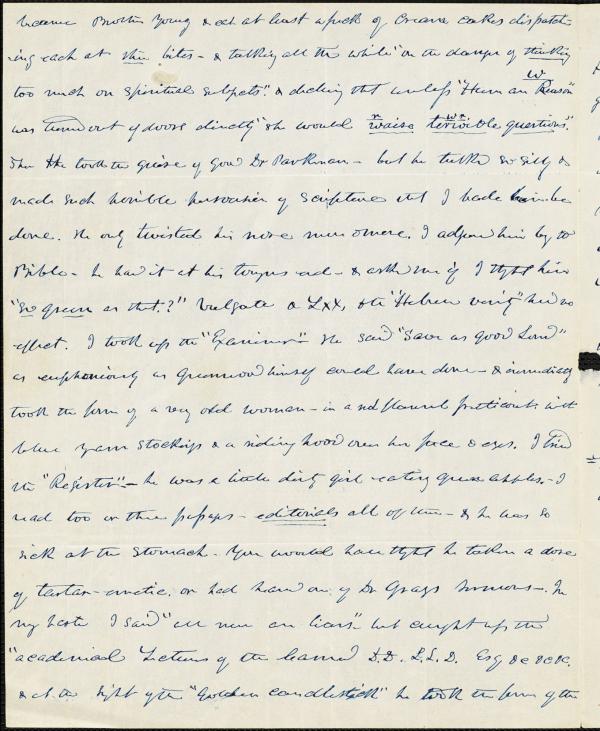 became Brother Young & eat at least a peck of Oceana cakes dispatch-
ing each at three bites — & talking all the while "on the danger of thinking
too much on spiritual subjects." & declaring that unless "Human Reason"
w
was turned out of doors directly" she would "waise terwible questions".
r w r
Then He took the guise of good Dr Parkman — but he talked so silly &
made such horrible perversion of Scripture that I bade him be
done. He only twisted his nose more & more. I adjured him by the
Bible — he had it at his tongues end — & asked me if I tho't him
"so green as that?" Vulgate & LXX, & the "Hebrew verity" had no
effect. I took up the "Examiner" — He said "Save us good Lord"
as euphoniously as Greenwood himself could have done — & immediately
took the form of a very old woman — in a red flannel petticoat with
blue yarn stockings & a riding hood over her face & eyes. I tried
the "Register" — he was a little dirty girl eating green apples. — I
read two or three passages — editorials all of them — & he was so
sick at the stomach — You would have tho't he taken a dose
of tartar-emetic, or had heard one of Dr Grays sermons —. In
my haste I said "all men are liars" — but caught up the
"academical Lectures of the learned D.D. L.L.D. Esq &c &c &c.
& at the sight of the "Golden candlestick" he took the form of the